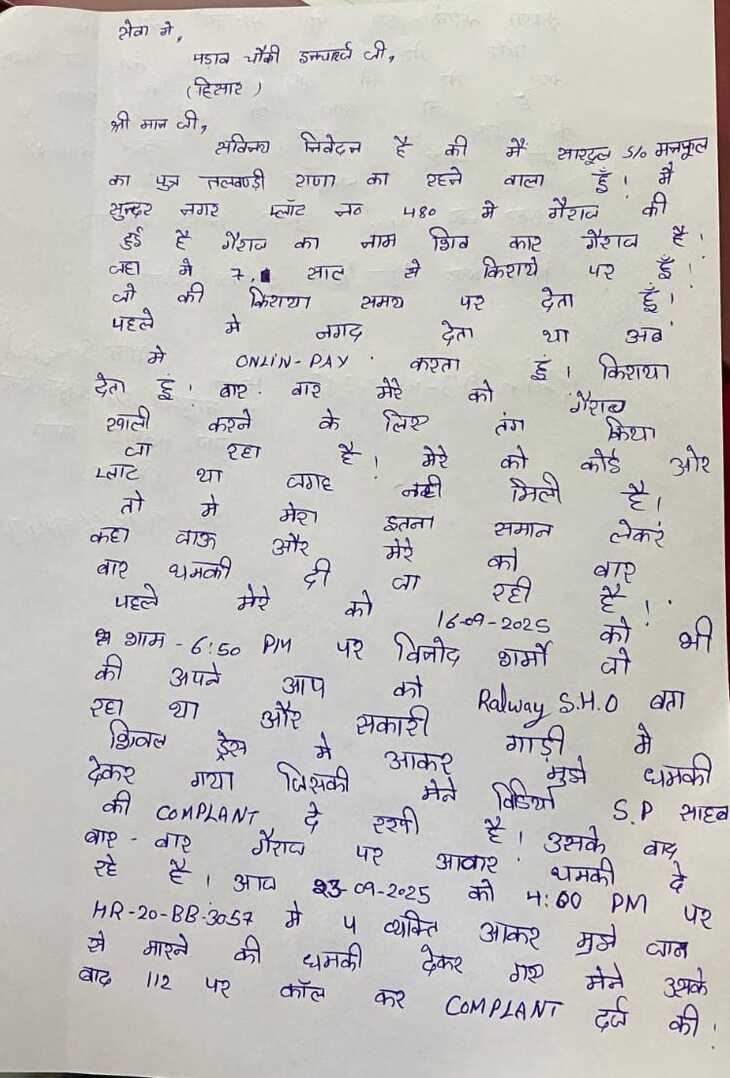 सेवा मे,
पड़ाव चौकी इन्चार्ज जी,
(हिसार)
श्री मान जी,
सविनय निवेदन है की मैं सारदूल S/o मनफूल
का पुत्र तलवण्डी राणा का रहने वाला हूँ। मै
सुन्दर नगर प्लॉट न० 480 मे गैराज की
हुई है गैराज का नाम शिव कार गैराज है।
जहा मे 7, साल से किराये पर हूँ।
जो की किराया समय पर देता हूँ।
पहले मे नगद देता था अब
मे ONLIN-PAY करता हूं। किराया
देता हूं। बार-बार मेरे को गैराज
खाली करने के लिए तंग किया
जा रहा है। मेरे को कोई ओर
प्लाट या जगह नही मिली है।
तो मे मेरा इतना समान लेकर
कहा जाऊ और मेरे को बार
बार धमकी दी जा रही है।
पहले मेरे को 16-09-2025 को भी
शाम - 6:50 PM पर विनोद शर्मा जो
की अपने आप को Ralway S.H.O बता
रहा था और सकारी गाड़ी मे
शिवल ड्रेस मे आकर मुझे धमकी
देकर गया जिसकी मेने विडियो S.P साहब
की COMPLANT दे रखी है। उसके बाद
बार-बार गैराज पर आकार धमकी दे
रहे है। आज 23-09-2025 को 4:00 PM पर
HR-20-BB-3057 मे 4 व्यक्ति आकर मुझे जान
से मारने की धमकी देकर गए मेने उसके
बाद 112 पर कॉल कर COMPLANT दर्ज की।